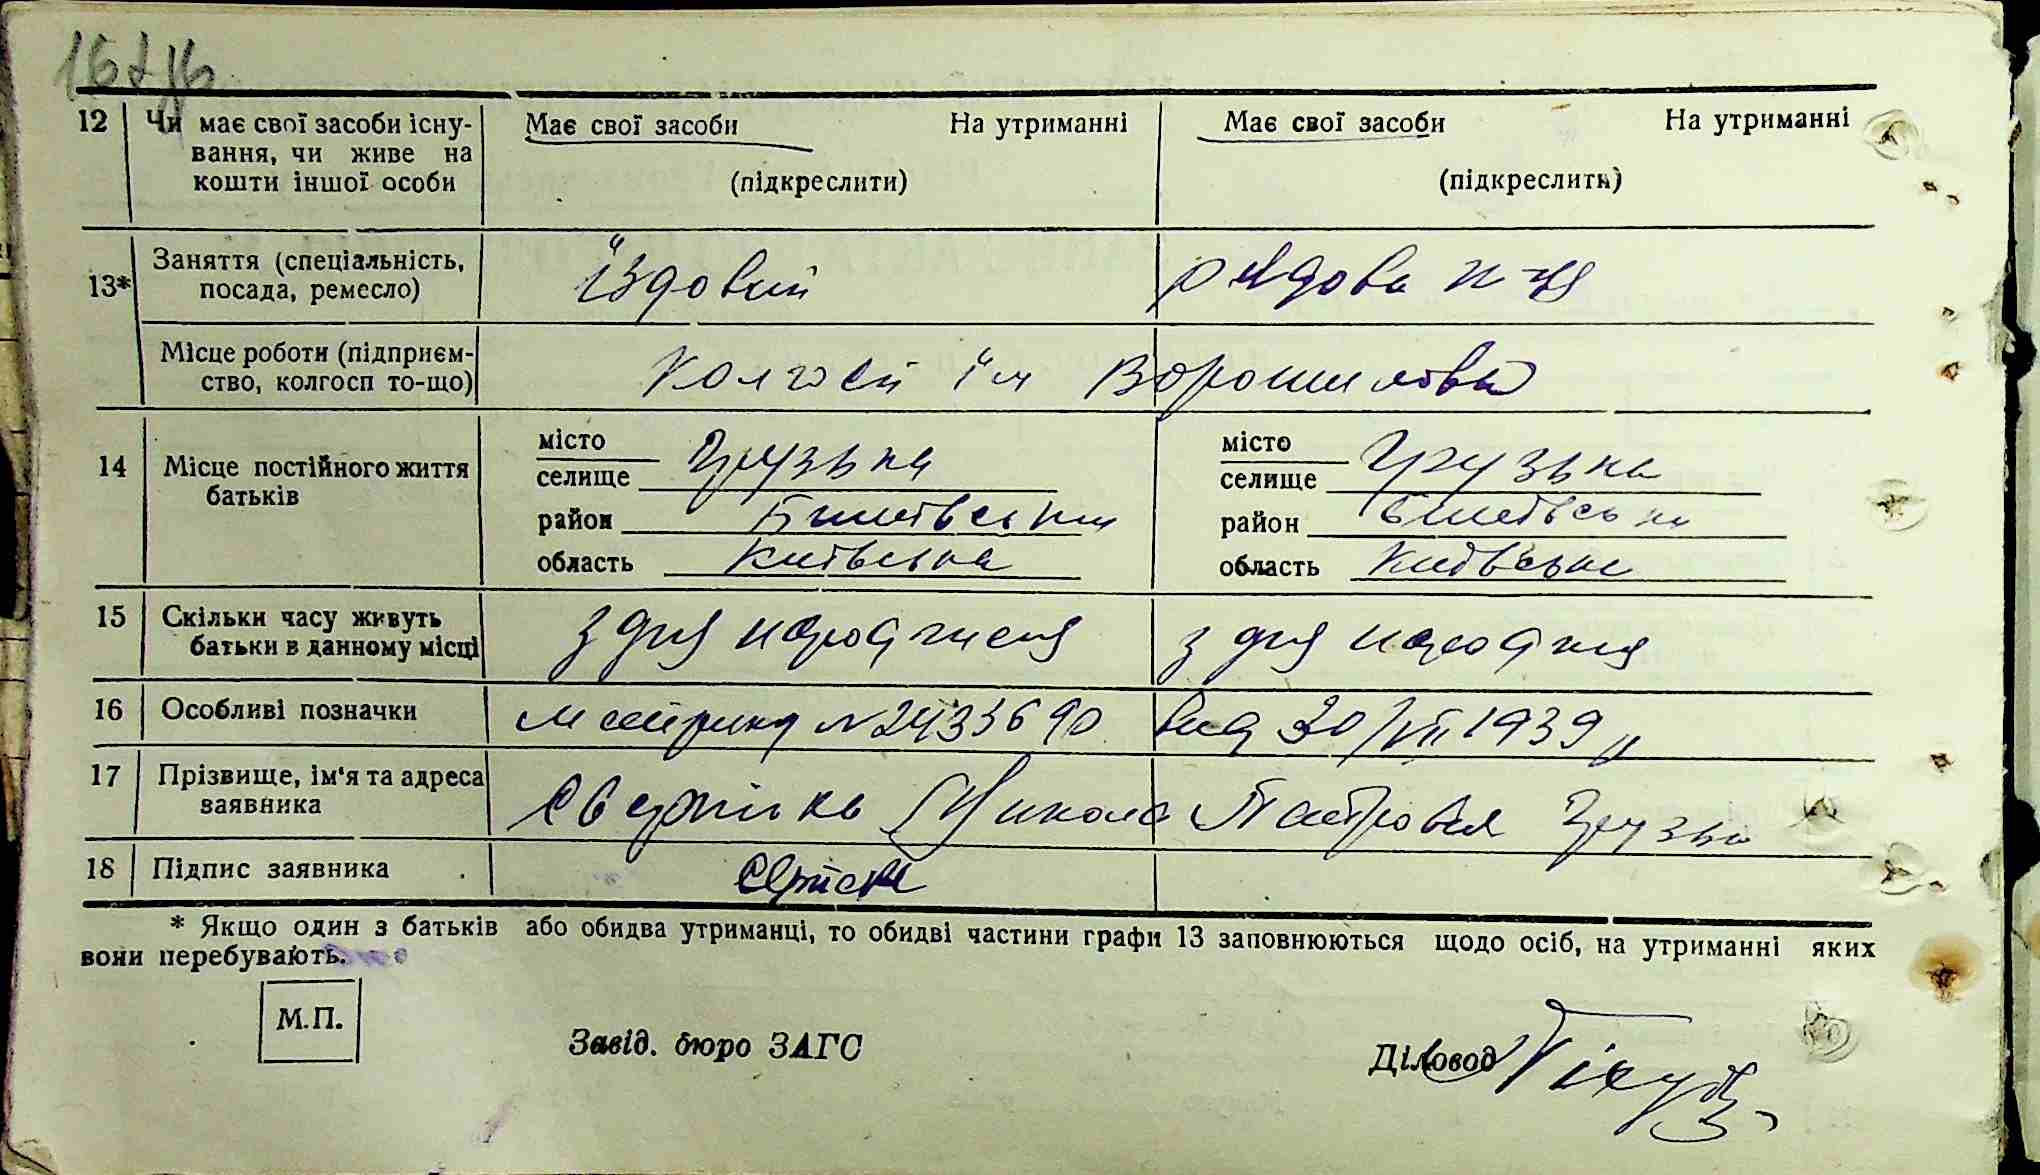 12 Чи має свої засоби існу-
вання, чи живе на
кошти іншої особи
Має свої засоби На утриманні
(підкреслити)
Має свої засоби На утриманні
(підкреслить)
13* Заняття (спеціальність,
посада, ремесло)
їздовий
рядова к-ця
Місце роботи (підприєм-
ство, колгосп то-що)
Колгосп ім Ворошилова
14 Місце постійного життя
батьків
місто
селище Грузька
район Бишівський
область Київська
місто
селище Грузька
район Бишівськи
область Київська
15 Скільки часу живуть
батьки в данному місці
з дня народження
з дня народженя
16 Особливі позначки
№ 2433690 вид 30/VII 1939 р
17 Прізвище, ім'я та адреса
заявника
Микола Петрович Грузька
18 Підпис заявника
* Якщо один з батьків або обидва утриманці, то обидві частини графи 13 заповнюються щодо осіб, на утриманні яких
вони перебувають.
М.П.
Завід. бюро ЗАГС
Діловод